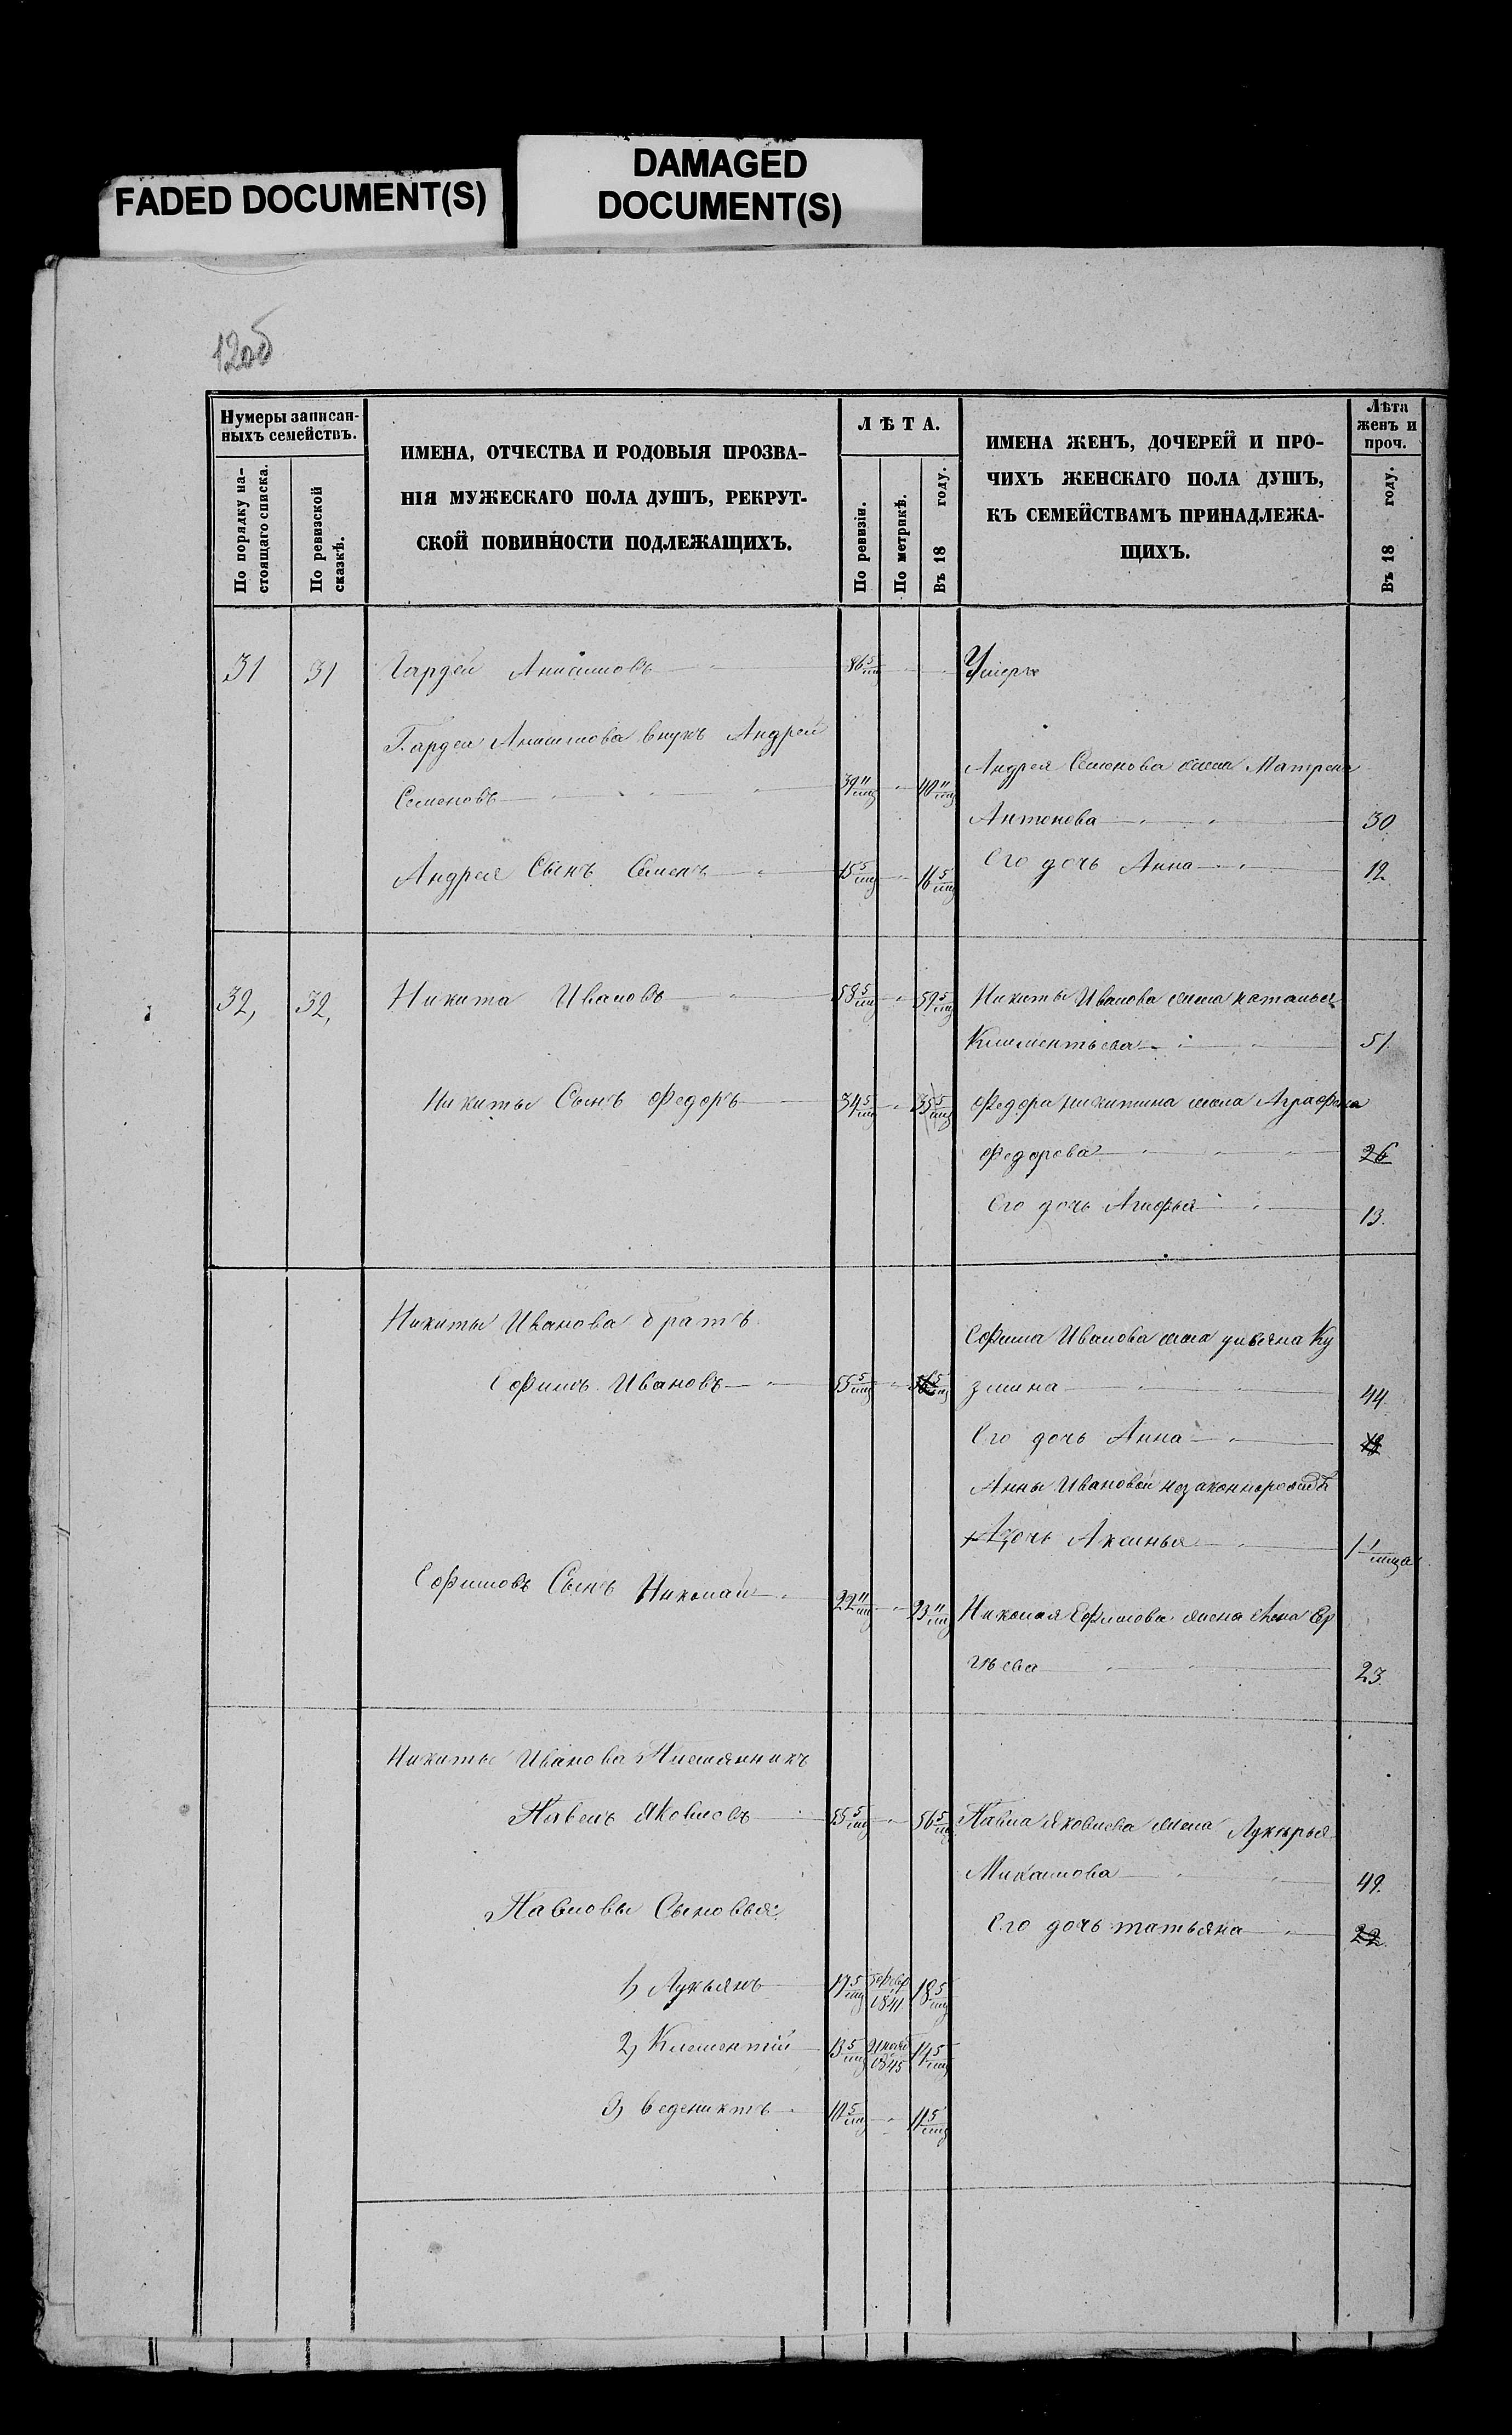 FADED DOCUMENT(S)
DAMAGED
DOCUMENT(S)
120б
Нумеры записан-
ныхъ семействъ.
По порядку на-
стоящаго списка.
По ревизской
сказкѣ.
ИМЕНА, ОТЧЕСТВА И РОДОВЫЯ ПРОЗВА-
НІЯ МУЖЕСКАГО ПОЛА ДУШЪ, РЕКРУТ-
СКОЙ ПОВИННОСТИ ПОДЛЕЖАЩИХЪ.
ЛѢТА.
По ревизіи.
По метрикѣ.
Въ 18 году.
ИМЕНА ЖЕНЪ, ДОЧЕРЕЙ И ПРО-
ЧИХЪ ЖЕНСКАГО ПОЛА ДУШЪ,
КЪ СЕМЕЙСТВАМЪ ПРИНАДЛЕЖА-
ЩИХЪ.
Лѣта
женъ и
проч.
Въ 18 году.
31 31 Гардей Анисимовъ 86 5/мц Умеръ
Гардея Анисимова внукъ Андрей
Семеновъ 39 11/мц 40 11/мц
Андрея Семонова жена Матрена
Антонова 30
Андрея Сынъ Семенъ 15 5/мц 16 5/мц Его дочь Анна 12
32, 32, Никита Ивановъ 58 5/мц 59 5/мц Никиты Иванова жена наталья
Климентьева 51
Никиты Сынъ Федоръ 34 5/мц 35 5/мц Федора никитина жена Аграфена
Федорова 26
Его дочь Агафья 13.
Никиты Иванова братъ
Ефимъ Ивановъ 55 5/мц 56 5/мц
Ефима Иванова жена ульяна Ку
змина 44
Его дочь Анна
Анны Ивановой незаконнорожд
дочь Аксинья 1 1/мца
Ефимовъ Сынъ Николай 22 11/мц 23 11/мц Николая Ефимова жена
23
Никиты Иванова Племянникъ
Павелъ Яковлевъ 55 5/мц 56 5/мц Павла Яковлева жена Лукерья
Михаилова 49.
Павловы Сыновья Его дочь татьяна 22
1, Лукьянъ 17 5/мц 5 февр 1841 18 5/мц
2, Клементій 13 5/мц 1845 14 5/мц
3, веденикть 10 5/мц 11 5/мц